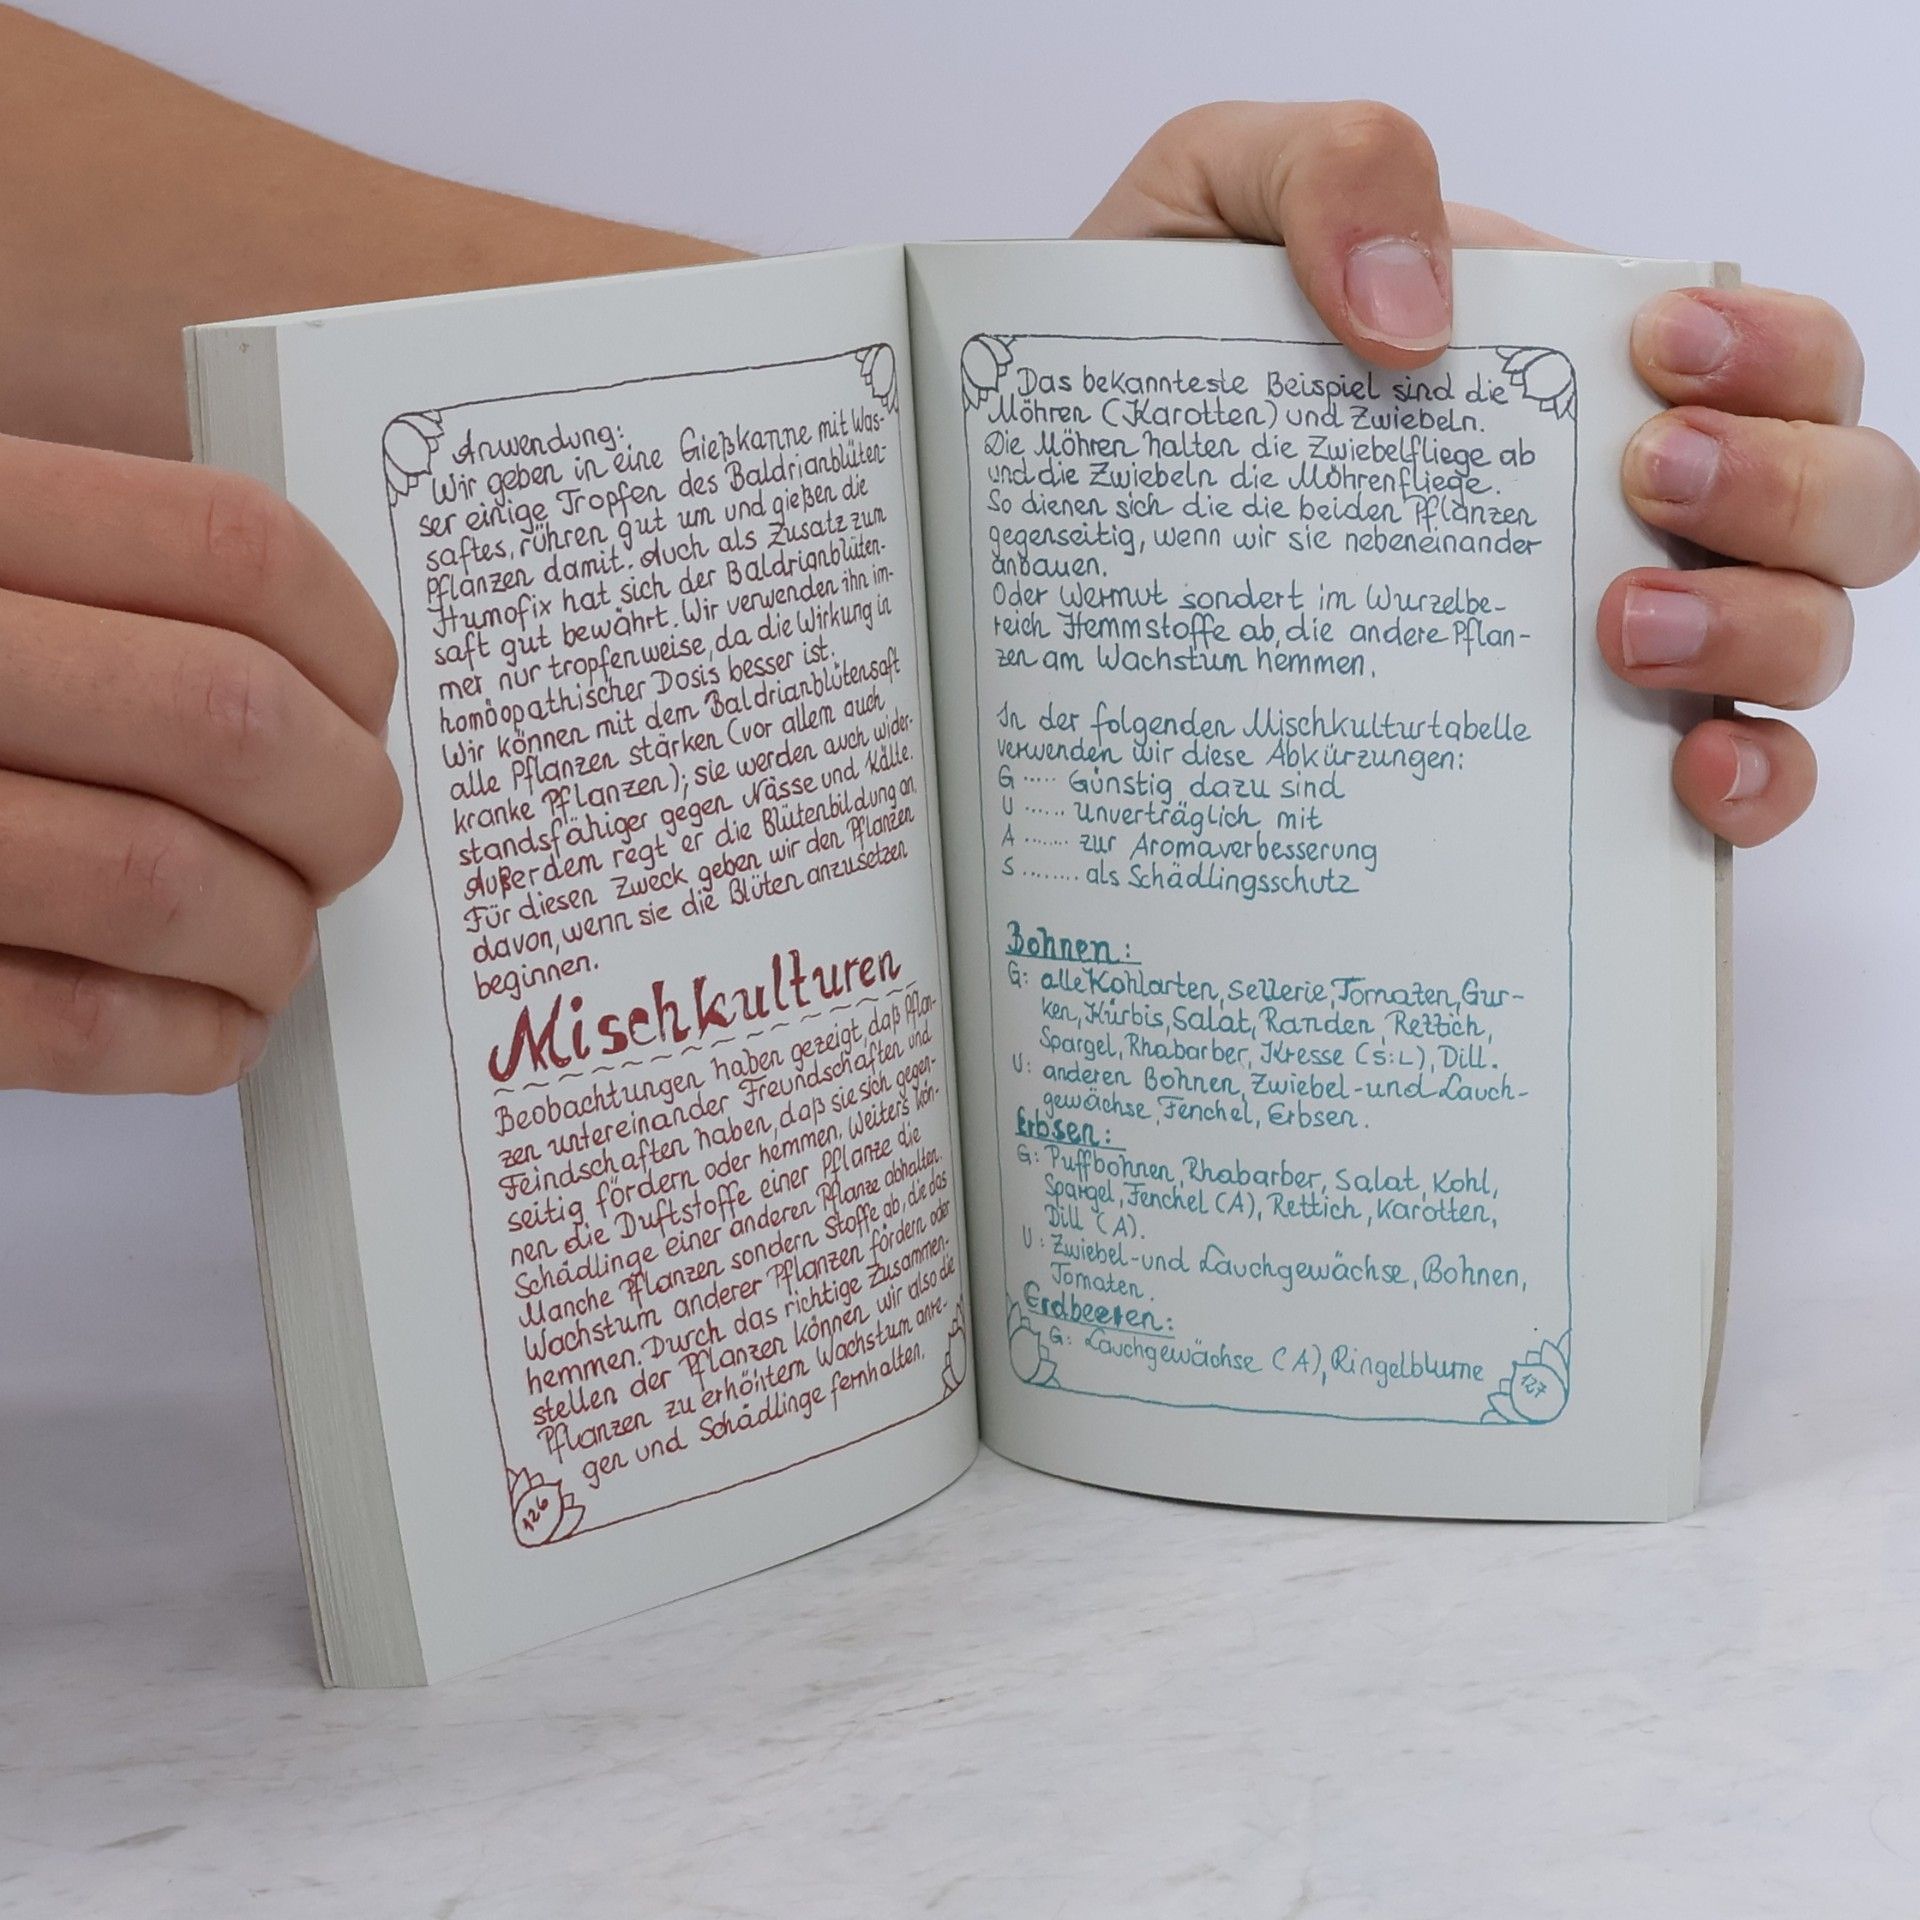 Anwendung:
Wir geben in eine Gießkanne mit Was-
ser einige Tropfen des Baldrianblüten-
saftes, rühren gut um und gießen die
Pflanzen damit. Auch als Zusatz zum
Humofix hat sich der Baldrianblüten-
saft gut bewährt. Wir verwenden ihn im-
mer nur tropfenweise, da die Wirkung in
homöopathischer Dosis besser ist.
Wir können mit dem Baldrianblütensaft
alle Pflanzen stärken (vor allem auch
kranke Pflanzen); sie werden auch wider-
standsfähiger gegen Nässe und Kälte.
Außerdem regt er die Blütenbildung an.
Für diesen Zweck geben wir den Pflanzen
davon, wenn sie die Blüten anzusetzen
beginnen.
Mischkulturen
Beobachtungen haben gezeigt, daß Pflan-
zen untereinander Freundschaften und
Feindschaften haben, daß sie sich gegen-
seitig fördern oder hemmen. Weiters kön-
nen die Duftstoffe einer Pflanze die
Schädlinge einer anderen Pflanze abhalten.
Manche Pflanzen sondern Stoffe ab, die das
Wachstum anderer Pflanzen fördern oder
hemmen. Durch das richtige Zusammen-
stellen der Pflanzen können wir also die
Pflanzen zu erhöhtem Wachstum anre-
gen und Schädlinge fernhalten.
126
Das bekannteste Beispiel sind die
Möhren (Karotten) und Zwiebeln.
Die Möhren halten die Zwiebelfliege ab
und die Zwiebeln die Möhrenfliege.
So dienen sich die die beiden Pflanzen
gegenseitig, wenn wir sie nebeneinander
anbauen.
Oder Wermut sondert im Wurzelbe-
reich Hemmstoffe ab, die andere Pflan-
zen am Wachstum hemmen.
In der folgenden Mischkulturtabelle
verwenden wir diese Abkürzungen:
G ..... Günstig dazu sind
U ...... unverträglich mit
A ....... zur Aromaverbesserung
S ........ als Schädlingsschutz
Bohnen:
G: alle Kohlarten, Sellerie, Tomaten, Gur-
ken, Kürbis, Salat, Randen, Rettich,
Spargel, Rhabarber, Kresse (S:L), Dill.
U: anderen Bohnen, Zwiebel-und Lauch-
gewächse, Fenchel, Erbsen.
Erbsen:
G: Puffbohnen, Rhabarber, Salat, Kohl,
Spargel, Fenchel (A), Rettich, Karotten,
Dill (A).
U: Zwiebel-und Lauchgewächse, Bohnen,
Tomaten.
Erdbeeren:
G: Lauchgewächse (A), Ringelblume
127